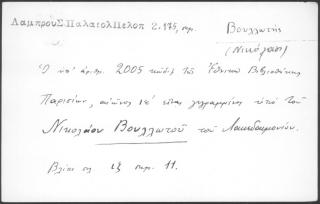 Λαμπρου Σ. Παλαιολ Πελοπ 2.175, σημ.
Βουλλωτής
(Νικόλαος)
Ὁ ὑπ' ἀριθμ. 2005 κώδιξ τῆς Ἐθνικῆς Βιβλιοθήκης
Παρισίων, αἰῶνος ιε' εἶναι γεγραμμένος ὑπὸ τοῦ
Νικολάου Βουλλωτοῦ τοῦ Λακεδαιμονίου.
Βλέπε σελ. ιξ σημ. 11.